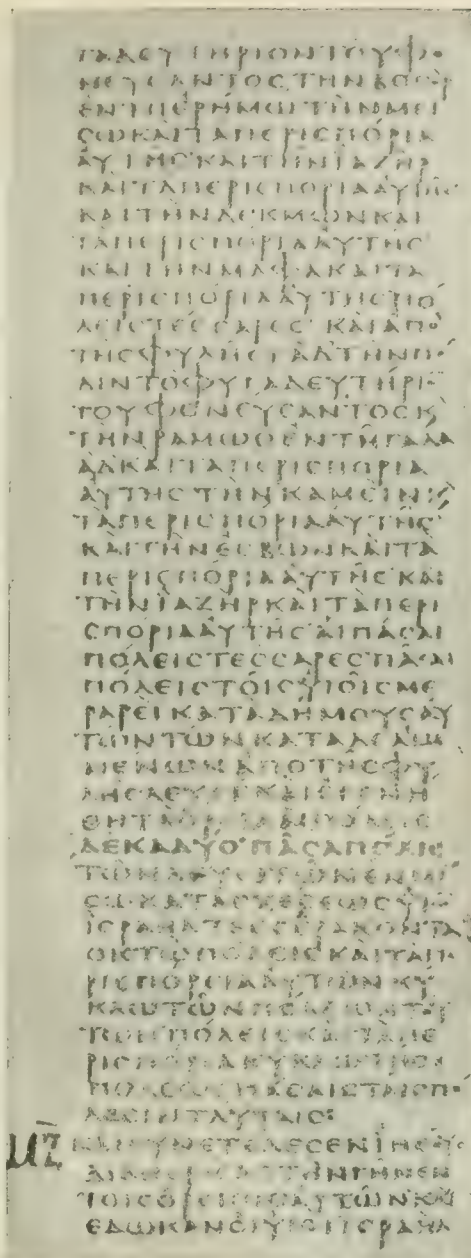 ΓΑΔΕΥΤΗΡΙΟΝΤΟΥΦΟ
ΝΕΥϹΑΝΤΟϹΤΗΝΒΟϹΟΡ
ΕΝΤΗΕΡΗΜΩΤΗΝΜΕΙ
ϹΩΚΑΙΤΑΠΕΡΙϹΠΟΡΙΑ
ΑΥΤΗϹΚΑΙΤΗΝΙΑΖΗΡ
ΚΑΙΤΑΠΕΡΙϹΠΟΡΙΑΑΥΤΗϹ
ΚΑΙΤΗΝΔΕΚΜΩΝΚΑΙ
ΤΑΠΕΡΙϹΠΟΡΙΑΑΥΤΗϹ
ΚΑΙΤΗΝΜΑΦΑΚΑΙΤΑ
ΠΕΡΙϹΠΟΡΙΑΑΥΤΗϹΠΟ
ΛΕΙϹΤΕϹϹΑΡΕϹ ΚΑΙΑΠΟ
ΤΗϹΦΥΛΗϹΓΑΔΤΗΝΠΟ
ΛΙΝΤΟΦΥΓΑΔΕΥΤΗΡΙΟ
ΤΟΥΦΟΝΕΥϹΑΝΤΟϹϗ
ΤΗΝΡΑΜΩΘΕΝΤΗΓΑΛΑ
ΑΔΚΑΙΤΑΠΕΡΙϹΠΟΡΙΑ
ΑΥΤΗϹΤΗΝΚΑΜΕΙΝϗ
ΤΑΠΕΡΙϹΠΟΡΙΑΑΥΤΗϹ
ΚΑΙΤΗΝΕϹΒΩΝΚΑΙΤΑ
ΠΕΡΙϹΠΟΡΙΑΑΥΤΗϹΚΑΙ
ΤΗΝΙΑΖΗΡΚΑΙΤΑΠΕΡΙ
ϹΠΟΡΙΑΑΥΤΗϹΑΙΠΑϹΑΙ
ΠΟΛΕΙϹΤΕϹϹΑΡΕϹΠΑϹΑΙ
ΠΟΛΕΙϹΤΟΙϹΥΙΟΙϹΜΕ
ΡΑΡΕΙΚΑΤΑΔΗΜΟΥϹΑΥ
ΤΩΝΤΩΝΚΑΤΑΛΕΛΙΜ
ΜΕΝΩΝΑΠΟΤΗϹΦΥ
ΛΗϹΛΕΥΙ ΚΑΙΕΓΕΝΗ
ΘΗΤΑΟΡΙΑΑΙΠΟΛΕΙϹ
ΔΕΚΑΔΥΟ ΠΑϹΑΙΠΟΛΕΙϹ
ΤΩΝΛΕΥΕΙΤΩΝΕΝΜΕ
ϹΩΚΑΤΑϹΧΕϹΕΩϹΥΙΩ
ΙϹΡΑΗΛΤΕϹϹΕΡΑΚΟΝΤΑ
ΟΚΤΩΠΟΛΕΙϹΚΑΙΤΑΠΕ
ΡΙϹΠΟΡΕΙΑΑΥΤΩΝΚΥ
ΚΛΩΤΩΝΠΟΛΕΩΝΤΟΥ
ΤΩΝΠΟΛΕΙϹΚΑΙΤΑΠΕ
ΡΙϹΠΟΡΙΑΚΥΚΛΩΤΗϹ
ΠΟΛΕΩϹΠΑϹΑΙϹΤΑΙϹΠΟ
ΛΕϹΙΝΤΑΥΤΑΙϹ:
ΜΖ ΚΑΙϹΥΝΕΤΕΛΕϹΕΝΙΗϹΟΥϹ
ΔΙΑΜΕΡΙϹΑϹΤΗΝΓΗΝΕΝ
ΤΟΙϹΟΡΙΟΙϹΑΥΤΩΝΚΑΙ
ΕΔΩΚΑΝΟΙΥΙΟΙΙϹΡΑΗΛ